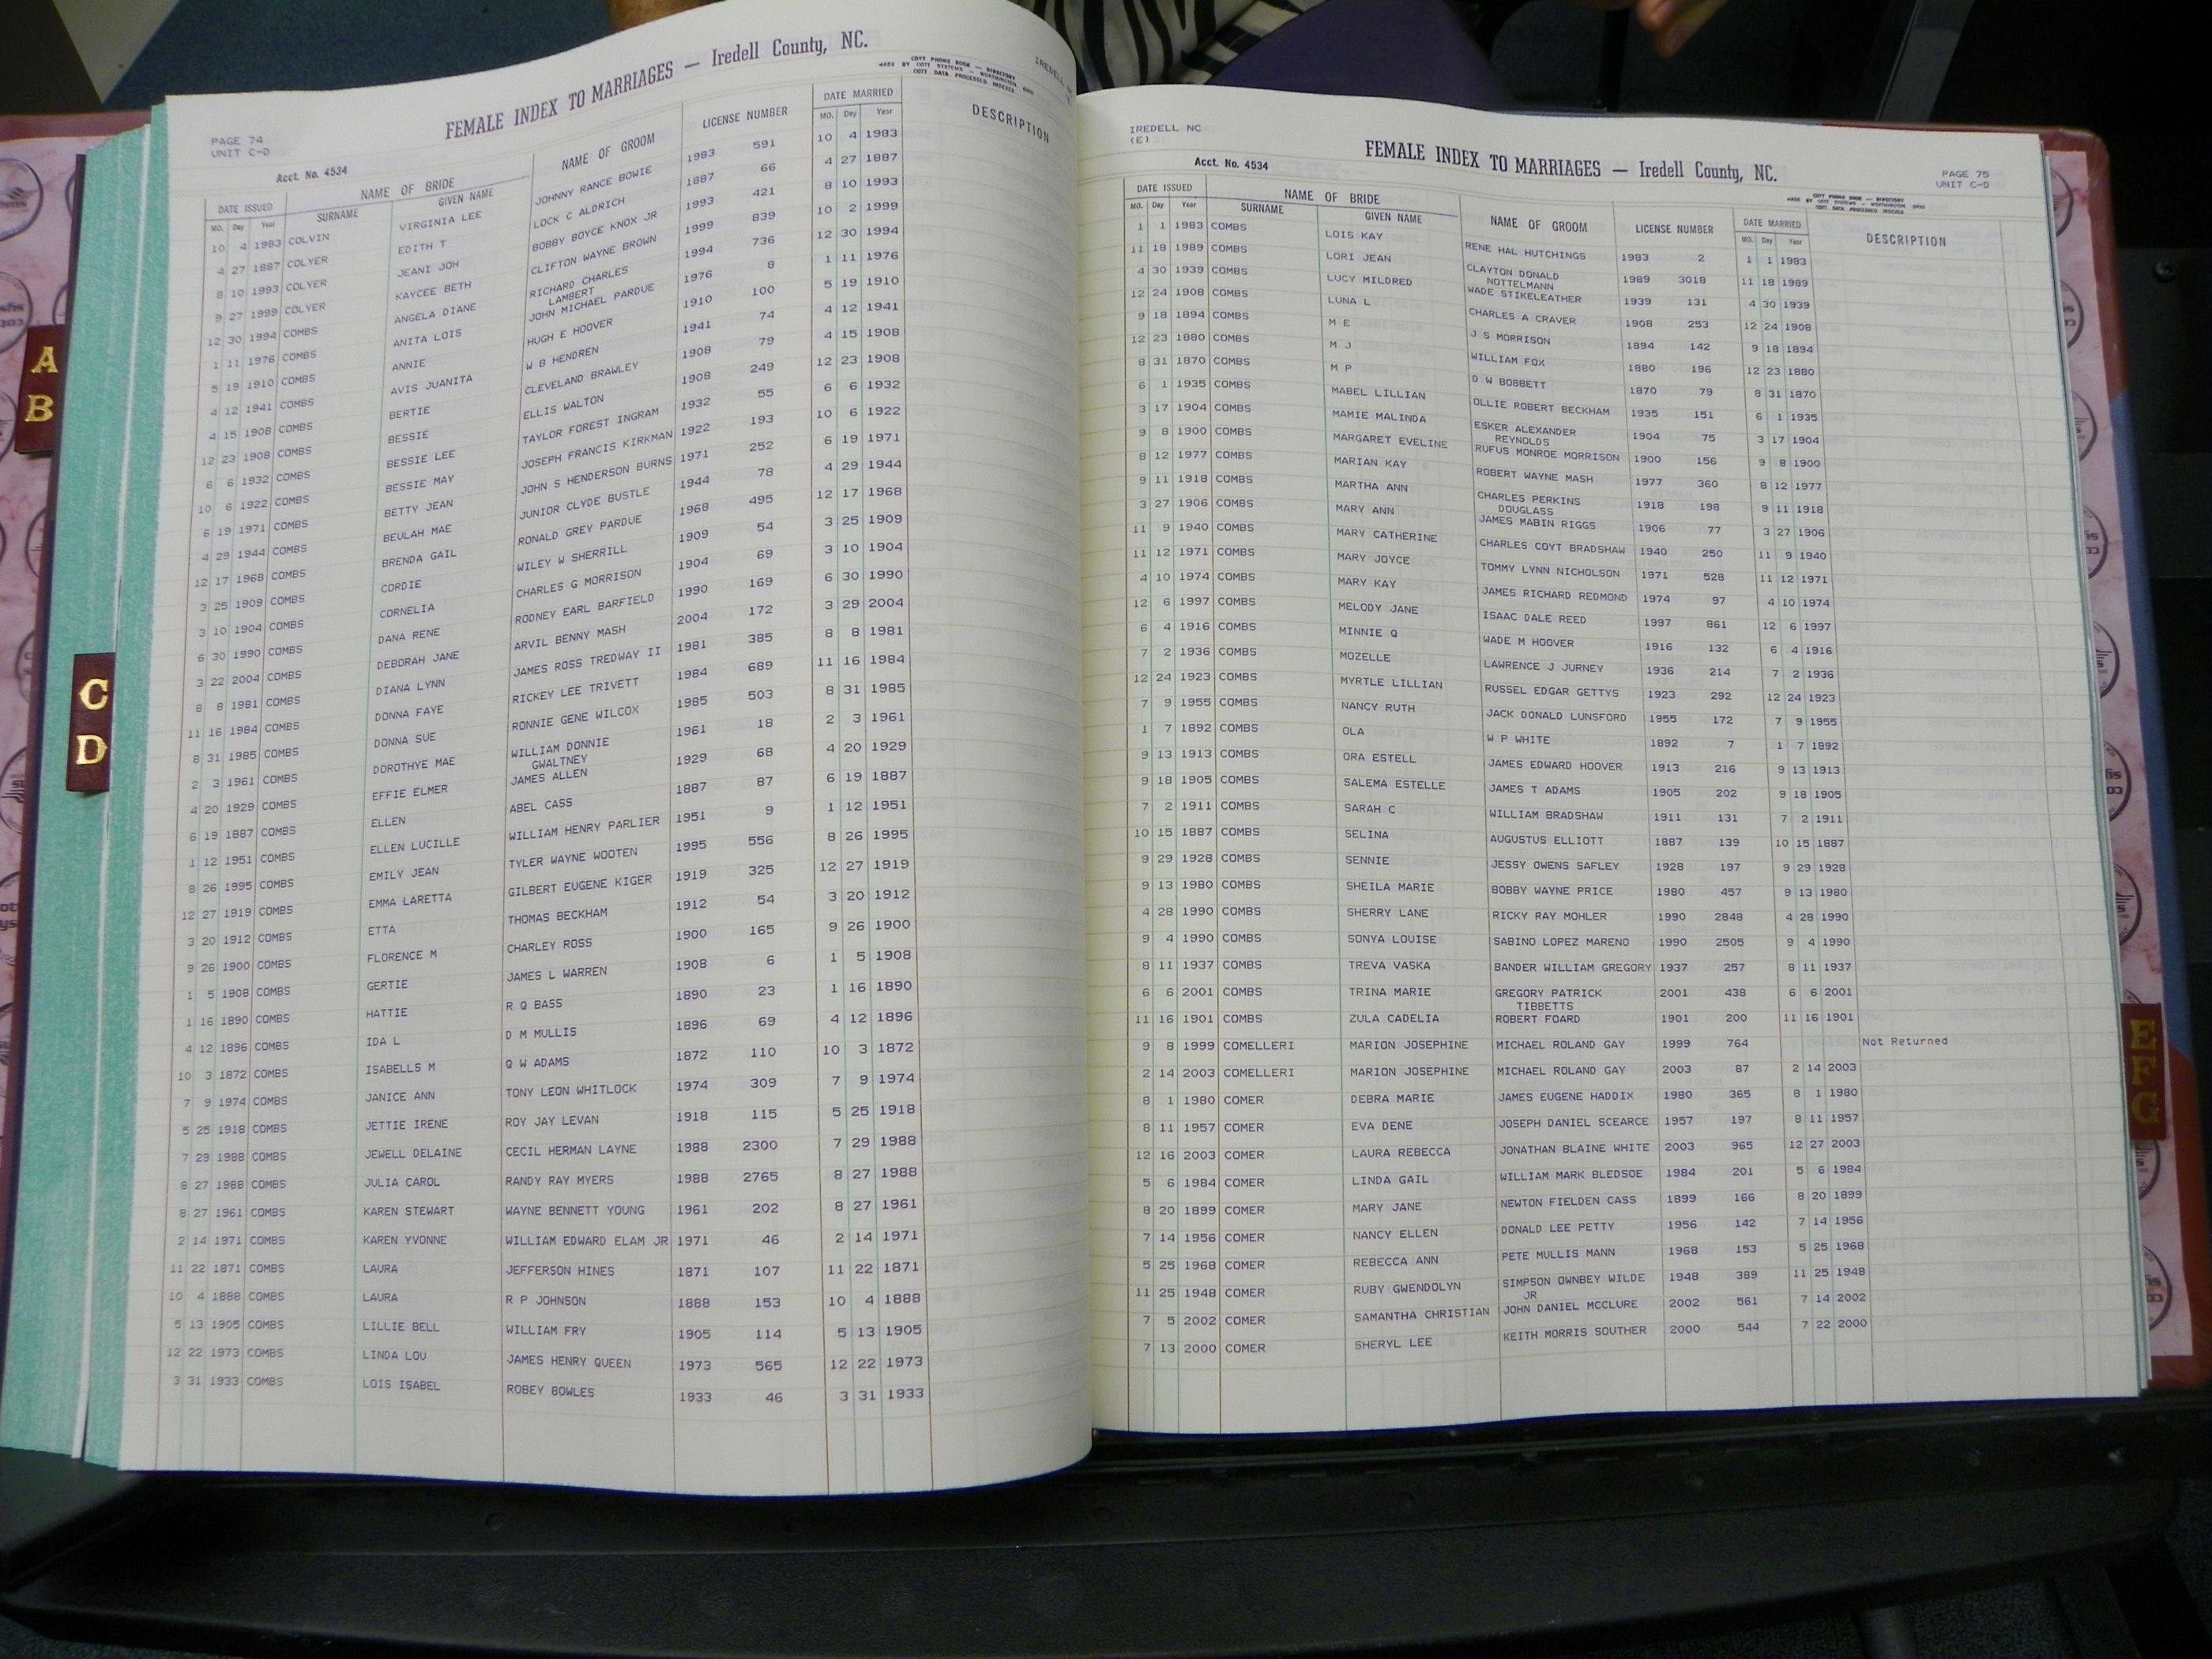 PAGE 74
UNIT C-D
Acct. No. 4534
FEMALE INDEX TO MARRIAGES — Iredell County, NC.
COTT PHONE BOOK — DIRECTORY
MADE BY COTT SYSTEMS — WORTHINGTON OHIO
COTT DATA PROCESSED INDEXES
DATE ISSUED NAME OF BRIDE NAME OF GROOM LICENSE NUMBER DATE MARRIED DESCRIPTION
MO. Day Year SURNAME GIVEN NAME MO. Day Year
10 4 1983 COLVIN VIRGINIA LEE JOHNNY RANCE BOWIE 1983 591 10 4 1983
4 27 1887 COLYER EDITH T LOCK C ALDRICH 1887 66 4 27 1887
8 10 1993 COLYER JEANI JOH BOBBY BOYCE KNOX JR 1993 421 8 10 1993
9 27 1999 COLYER KAYCEE BETH CLIFTON WAYNE BROWN 1999 839 10 2 1999
12 30 1994 COMBS ANGELA DIANE RICHARD CHARLES 1994 736 12 30 1994
LAMBERT
1 11 1976 COMBS ANITA LOIS JOHN MICHAEL PARDUE 1976 8 1 11 1976
5 19 1910 COMBS ANNIE HUGH E HOOVER 1910 100 5 19 1910
4 12 1941 COMBS AVIS JUANITA W B HENDREN 1941 74 4 12 1941
4 15 1908 COMBS BERTIE CLEVELAND BRAWLEY 1908 79 4 15 1908
12 23 1908 COMBS BESSIE ELLIS WALTON 1908 249 12 23 1908
6 6 1932 COMBS BESSIE LEE TAYLOR FOREST INGRAM 1932 55 6 6 1932
10 6 1922 COMBS BESSIE MAY JOSEPH FRANCIS KIRKMAN 1922 193 10 6 1922
6 19 1971 COMBS BETTY JEAN JOHN S HENDERSON BURNS 1971 252 6 19 1971
4 29 1944 COMBS BEULAH MAE JUNIOR CLYDE BUSTLE 1944 78 4 29 1944
12 17 1968 COMBS BRENDA GAIL RONALD GREY PARDUE 1968 495 12 17 1968
3 25 1909 COMBS CORDIE WILEY W SHERRILL 1909 54 3 25 1909
3 10 1904 COMBS CORNELIA CHARLES G MORRISON 1904 69 3 10 1904
6 30 1990 COMBS DANA RENE RODNEY EARL BARFIELD 1990 169 6 30 1990
3 22 2004 COMBS DEBORAH JANE ARVIL BENNY MASH 2004 172 3 29 2004
8 8 1981 COMBS DIANA LYNN JAMES ROSS TREDWAY II 1981 385 8 8 1981
11 16 1984 COMBS DONNA FAYE RICKEY LEE TRIVETT 1984 689 11 16 1984
8 31 1985 COMBS DONNA SUE RONNIE GENE WILCOX 1985 503 8 31 1985
2 3 1961 COMBS DOROTHYE MAE WILLIAM DONNIE 1961 18 2 3 1961
GWALTNEY
4 20 1929 COMBS EFFIE ELMER JAMES ALLEN 1929 68 4 20 1929
6 19 1887 COMBS ELLEN ABEL CASS 1887 87 6 19 1887
1 12 1951 COMBS ELLEN LUCILLE WILLIAM HENRY PARLIER 1951 9 1 12 1951
8 26 1995 COMBS EMILY JEAN TYLER WAYNE WOOTEN 1995 556 8 26 1995
12 27 1919 COMBS EMMA LARETTA GILBERT EUGENE KIGER 1919 325 12 27 1919
3 20 1912 COMBS ETTA THOMAS BECKHAM 1912 54 3 20 1912
9 26 1900 COMBS FLORENCE M CHARLEY ROSS 1900 165 9 26 1900
1 5 1908 COMBS GERTIE JAMES L WARREN 1908 6 1 5 1908
1 16 1890 COMBS HATTIE R Q BASS 1890 23 1 16 1890
4 12 1896 COMBS IDA L D M MULLIS 1896 69 4 12 1896
10 3 1872 COMBS ISABELLS M Q W ADAMS 1872 110 10 3 1872
7 9 1974 COMBS JANICE ANN TONY LEON WHITLOCK 1974 309 7 9 1974
5 25 1918 COMBS JETTIE IRENE ROY JAY LEVAN 1918 115 5 25 1918
7 29 1988 COMBS JEWELL DELAINE CECIL HERMAN LAYNE 1988 2300 7 29 1988
8 27 1988 COMBS JULIA CAROL RANDY RAY MYERS 1988 2765 8 27 1988
8 27 1961 COMBS KAREN STEWART WAYNE BENNETT YOUNG 1961 202 8 27 1961
2 14 1971 COMBS KAREN YVONNE WILLIAM EDWARD ELAM JR 1971 46 2 14 1971
11 22 1871 COMBS LAURA JEFFERSON HINES 1871 107 11 22 1871
10 4 1888 COMBS LAURA R P JOHNSON 1888 153 10 4 1888
5 13 1905 COMBS LILLIE BELL WILLIAM FRY 1905 114 5 13 1905
12 22 1973 COMBS LINDA LOU JAMES HENRY QUEEN 1973 565 12 22 1973
3 31 1933 COMBS LOIS ISABEL ROBEY BOWLES 1933 46 3 31 1933
IREDELL NC
(E)
Acct. No. 4534
FEMALE INDEX TO MARRIAGES — Iredell County, NC.
PAGE 75
UNIT C-D
COTT PHONE BOOK — DIRECTORY
MADE BY COTT SYSTEMS — WORTHINGTON OHIO
COTT DATA PROCESSED INDEXES
DATE ISSUED NAME OF BRIDE NAME OF GROOM LICENSE NUMBER DATE MARRIED DESCRIPTION
MO. Day Year SURNAME GIVEN NAME MO. Day Year
1 1 1983 COMBS LOIS KAY RENE HAL HUTCHINGS 1983 2 1 1 1983
11 18 1989 COMBS LORI JEAN CLAYTON DONALD 1989 3018 11 18 1989
NOTTELMANN
4 30 1939 COMBS LUCY MILDRED WADE STIKELEATHER 1939 131 4 30 1939
12 24 1908 COMBS LUNA L CHARLES A CRAVER 1908 253 12 24 1908
9 18 1894 COMBS M E J S MORRISON 1894 142 9 18 1894
12 23 1880 COMBS M J WILLIAM FOX 1880 196 12 23 1880
8 31 1870 COMBS M P D W BOBBETT 1870 79 8 31 1870
6 1 1935 COMBS MABEL LILLIAN OLLIE ROBERT BECKHAM 1935 151 6 1 1935
3 17 1904 COMBS MAMIE MALINDA ESKER ALEXANDER 1904 75 3 17 1904
REYNOLDS
9 8 1900 COMBS MARGARET EVELINE RUFUS MONROE MORRISON 1900 156 9 8 1900
8 12 1977 COMBS MARIAN KAY ROBERT WAYNE MASH 1977 360 8 12 1977
9 11 1918 COMBS MARTHA ANN CHARLES PERKINS 1918 198 9 11 1918
DOUGLASS
3 27 1906 COMBS MARY ANN JAMES MABIN RIGGS 1906 77 3 27 1906
11 9 1940 COMBS MARY CATHERINE CHARLES COYT BRADSHAW 1940 250 11 9 1940
11 12 1971 COMBS MARY JOYCE TOMMY LYNN NICHOLSON 1971 528 11 12 1971
4 10 1974 COMBS MARY KAY JAMES RICHARD REDMOND 1974 97 4 10 1974
12 6 1997 COMBS MELODY JANE ISAAC DALE REED 1997 861 12 6 1997
6 4 1916 COMBS MINNIE Q WADE M HOOVER 1916 132 6 4 1916
7 2 1936 COMBS MOZELLE LAWRENCE J JURNEY 1936 214 7 2 1936
12 24 1923 COMBS MYRTLE LILLIAN RUSSEL EDGAR GETTYS 1923 292 12 24 1923
7 9 1955 COMBS NANCY RUTH JACK DONALD LUNSFORD 1955 172 7 9 1955
1 7 1892 COMBS OLA W P WHITE 1892 7 1 7 1892
9 13 1913 COMBS ORA ESTELL JAMES EDWARD HOOVER 1913 216 9 13 1913
9 18 1905 COMBS SALEMA ESTELLE JAMES T ADAMS 1905 202 9 18 1905
7 2 1911 COMBS SARAH C WILLIAM BRADSHAW 1911 131 7 2 1911
10 15 1887 COMBS SELINA AUGUSTUS ELLIOTT 1887 139 10 15 1887
9 29 1928 COMBS SENNIE JESSY OWENS SAFLEY 1928 197 9 29 1928
9 13 1980 COMBS SHEILA MARIE BOBBY WAYNE PRICE 1980 457 9 13 1980
4 28 1990 COMBS SHERRY LANE RICKY RAY MOHLER 1990 2848 4 28 1990
9 4 1990 COMBS SONYA LOUISE SABINO LOPEZ MARENO 1990 2505 9 4 1990
8 11 1937 COMBS TREVA VASKA BANDER WILLIAM GREGORY 1937 257 8 11 1937
6 6 2001 COMBS TRINA MARIE GREGORY PATRICK 2001 438 6 6 2001
TIBBETTS
11 16 1901 COMBS ZULA CADELIA ROBERT FOARD 1901 200 11 16 1901
9 8 1999 COMELLERI MARION JOSEPHINE MICHAEL ROLAND GAY 1999 764 Not Returned
2 14 2003 COMELLERI MARION JOSEPHINE MICHAEL ROLAND GAY 2003 87 2 14 2003
8 1 1980 COMER DEBRA MARIE JAMES EUGENE HADDIX 1980 365 8 1 1980
8 11 1957 COMER EVA DENE JOSEPH DANIEL SCEARCE 1957 197 8 11 1957
12 16 2003 COMER LAURA REBECCA JONATHAN BLAINE WHITE 2003 965 12 27 2003
5 6 1984 COMER LINDA GAIL WILLIAM MARK BLEDSOE 1984 201 5 6 1984
8 20 1899 COMER MARY JANE NEWTON FIELDEN CASS 1899 166 8 20 1899
7 14 1956 COMER NANCY ELLEN DONALD LEE PETTY 1956 142 7 14 1956
5 25 1968 COMER REBECCA ANN PETE MULLIS MANN 1968 153 5 25 1968
11 25 1948 COMER RUBY GWENDOLYN SIMPSON OWNBEY WILDE 1948 389 11 25 1948
JR
7 5 2002 COMER SAMANTHA CHRISTIAN JOHN DANIEL MCCLURE 2002 561 7 14 2002
7 13 2000 COMER SHERYL LEE KEITH MORRIS SOUTHER 2000 544 7 22 2000
A
B
C
D
E
F
G